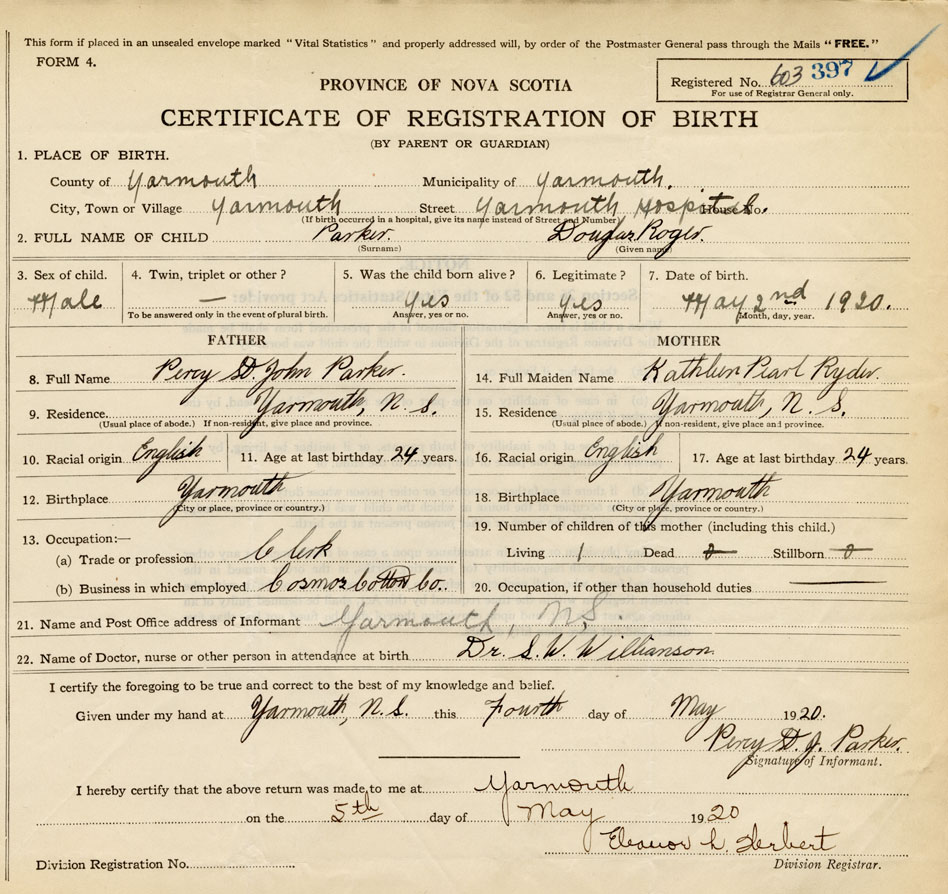 This form if placed in an unsealed envelope marked "Vital Statistics" and properly addressed will, by order of the Postmaster General pass through the Mails "FREE."
FORM 4.
Registered No. 603 397
For use of Registrar General only.
PROVINCE OF NOVA SCOTIA
CERTIFICATE OF REGISTRATION OF BIRTH
(BY PARENT OR GUARDIAN)
1. PLACE OF BIRTH.
County of Yarmouth Municipality of Yarmouth.
City, Town or Village Yarmouth Street Yarmouth Hospital. House No.
(If birth occurred in a hospital, give its name instead of Street and Number)
2. FULL NAME OF CHILD Parker. Douglas Roger.
(Surname) (Given name)
3. Sex of child. 4. Twin, triplet or other? 5. Was the child born alive? 6. Legitimate? 7. Date of birth.
Male — Yes Yes May 2nd 1920.
To be answered only in the event of plural birth. Answer, yes or no. Answer, yes or no. Month, day, year.
FATHER MOTHER
8. Full Name Percy St. John Parker. 14. Full Maiden Name Kathleen Pearl Ryder.
9. Residence. Yarmouth, N. S. 15. Residence Yarmouth, N. S.
(Usual place of abode.) If non-resident, give place and province. (Usual place of abode.) If non-resident, give place and province.
10. Racial origin English 11. Age at last birthday 24 years. 16. Racial origin English 17. Age at last birthday 24 years.
12. Birthplace Yarmouth 18. Birthplace Yarmouth
(City or place, province or country.) (City or place, province or country.)
19. Number of children of this mother (including this child.)
13. Occupation:—
(a) Trade or profession Clerk Living 1 Dead 0 Stillborn 0
(b) Business in which employed Cosmos Cotton Co. 20. Occupation, if other than household duties
21. Name and Post Office address of Informant Yarmouth, N.S.
22. Name of Doctor, nurse or other person in attendance at birth Dr. S. W. Willianson
I certify the foregoing to be true and correct to the best of my knowledge and belief.
Given under my hand at Yarmouth, N.S. this Fourth day of May 1920.
Percy St. J. Parker.
Signature of Informant.
I hereby certify that the above return was made to me at Yarmouth
on the 5th day of May 1920
Eleanor L. Herbert
Division Registration No. Division Registrar.